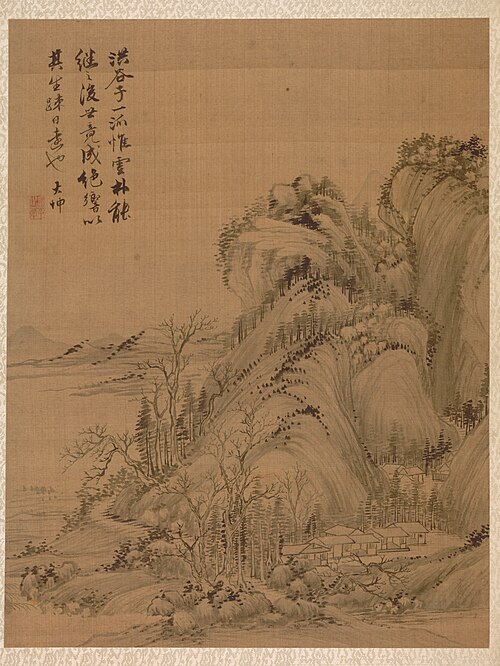 洪谷子一派惟雲林能
继之後世竟成絶響以
其生踈日遠也 大坤